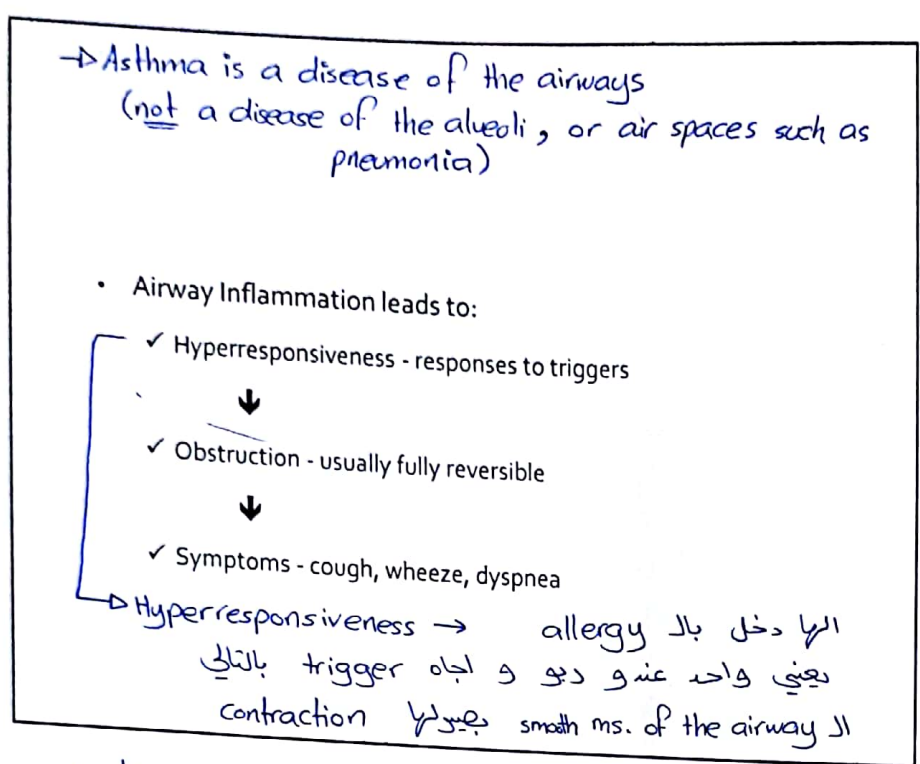 → Asthma is a disease of the airways
(not a disease of the alveoli, or air spaces such as
pneumonia)
• Airway Inflammation leads to:
✓ Hyperresponsiveness - responses to triggers
↓
✓ Obstruction - usually fully reversible
↓
✓ Symptoms - cough, wheeze, dyspnea
→ Hyperresponsiveness → الها دخل بال allergy
يعني واحد عندو ربو و اجاه trigger بالتالي
ال smooth ms. of the airway بصيرلها contraction